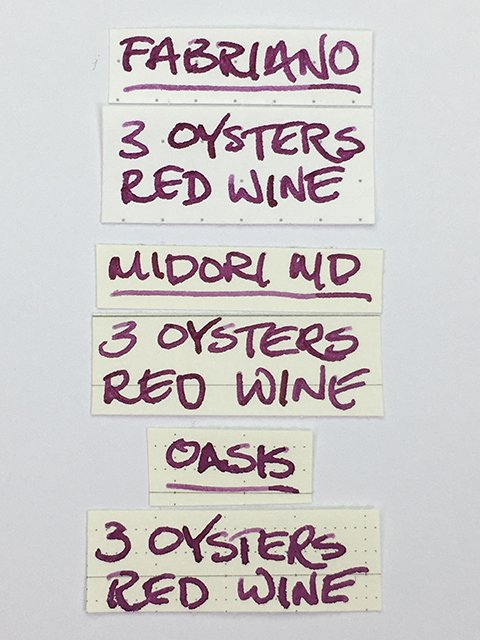 FABRIANO
3 OYSTERS
RED WINE
MIDORI MD
3 OYSTERS
RED WINE
OASIS
3 OYSTERS
RED WINE